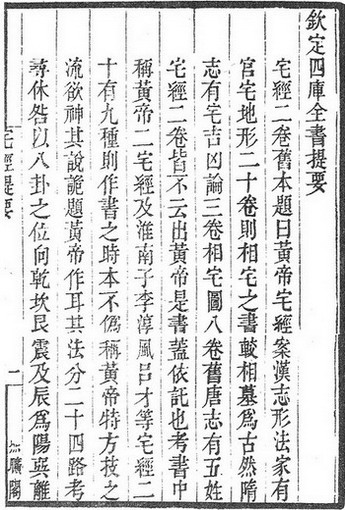 欽定四庫全書提要
宅經二卷舊本題曰黃帝宅經案漢志形法家有
宮宅地形二十卷則相宅之書較相墓爲古然隋
志有宅吉凶論三卷相宅圖八卷舊唐志有五姓
宅經二卷皆不云出黃帝是書蓋依託也考書中
稱黃帝二宅經及淮南子李淳風呂才等宅經二
十有九種則作書之時本不僞稱黃帝特方技之
流欲神其說詭題黃帝作耳其法分二十四路考
尋休咎以八卦之位向乾坎艮震及辰爲陽巽離
宅經提要
一